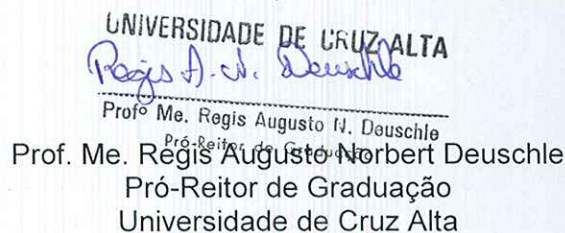 UNIVERSIDADE DE CRUZ ALTA
Regis A. N. Deuschle
Profº Me. Regis Augusto N. Deuschle
Pró-Reitor de Graduação
Prof. Me. Régis Augusto Norbert Deuschle
Pró-Reitor de Graduação
Universidade de Cruz Alta